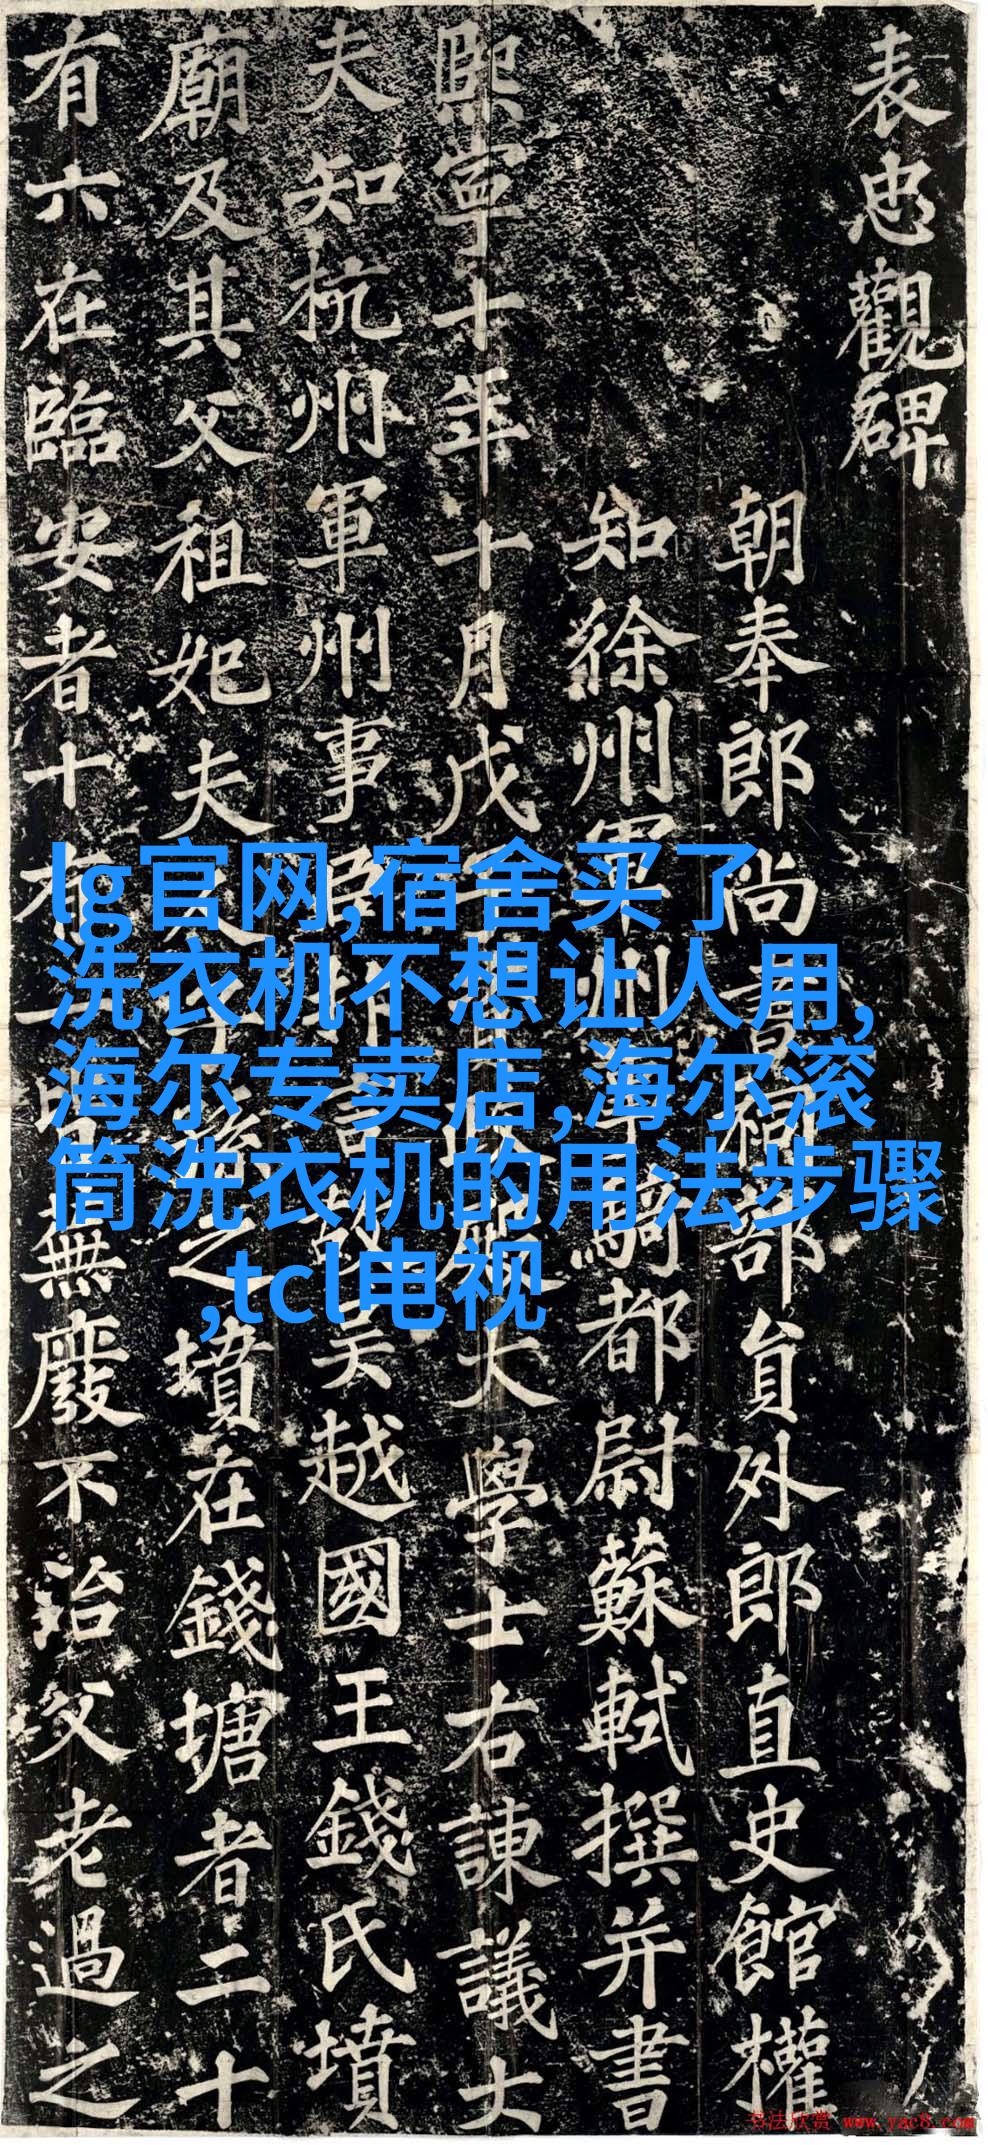 表忠觀碑
朝奉郎尚書祠部員外郎直史館權
知徐州軍州事騎都尉蘇軾撰并書
熙寧十年十月戊子資政殿大學士右諫議大
夫知杭州軍州事臣抃言故吳越國王錢氏墳
廟及其父祖妃夫人子孫之墳在錢塘者二十
有六在臨安者十有一皆蕪廢不治父老過之
lg官网,宿舍买了
洗衣机不想让人用,
海尔专卖店,海尔滚
筒洗衣机的用法步骤
,tcl电视
书法欣赏 www.yac8.com